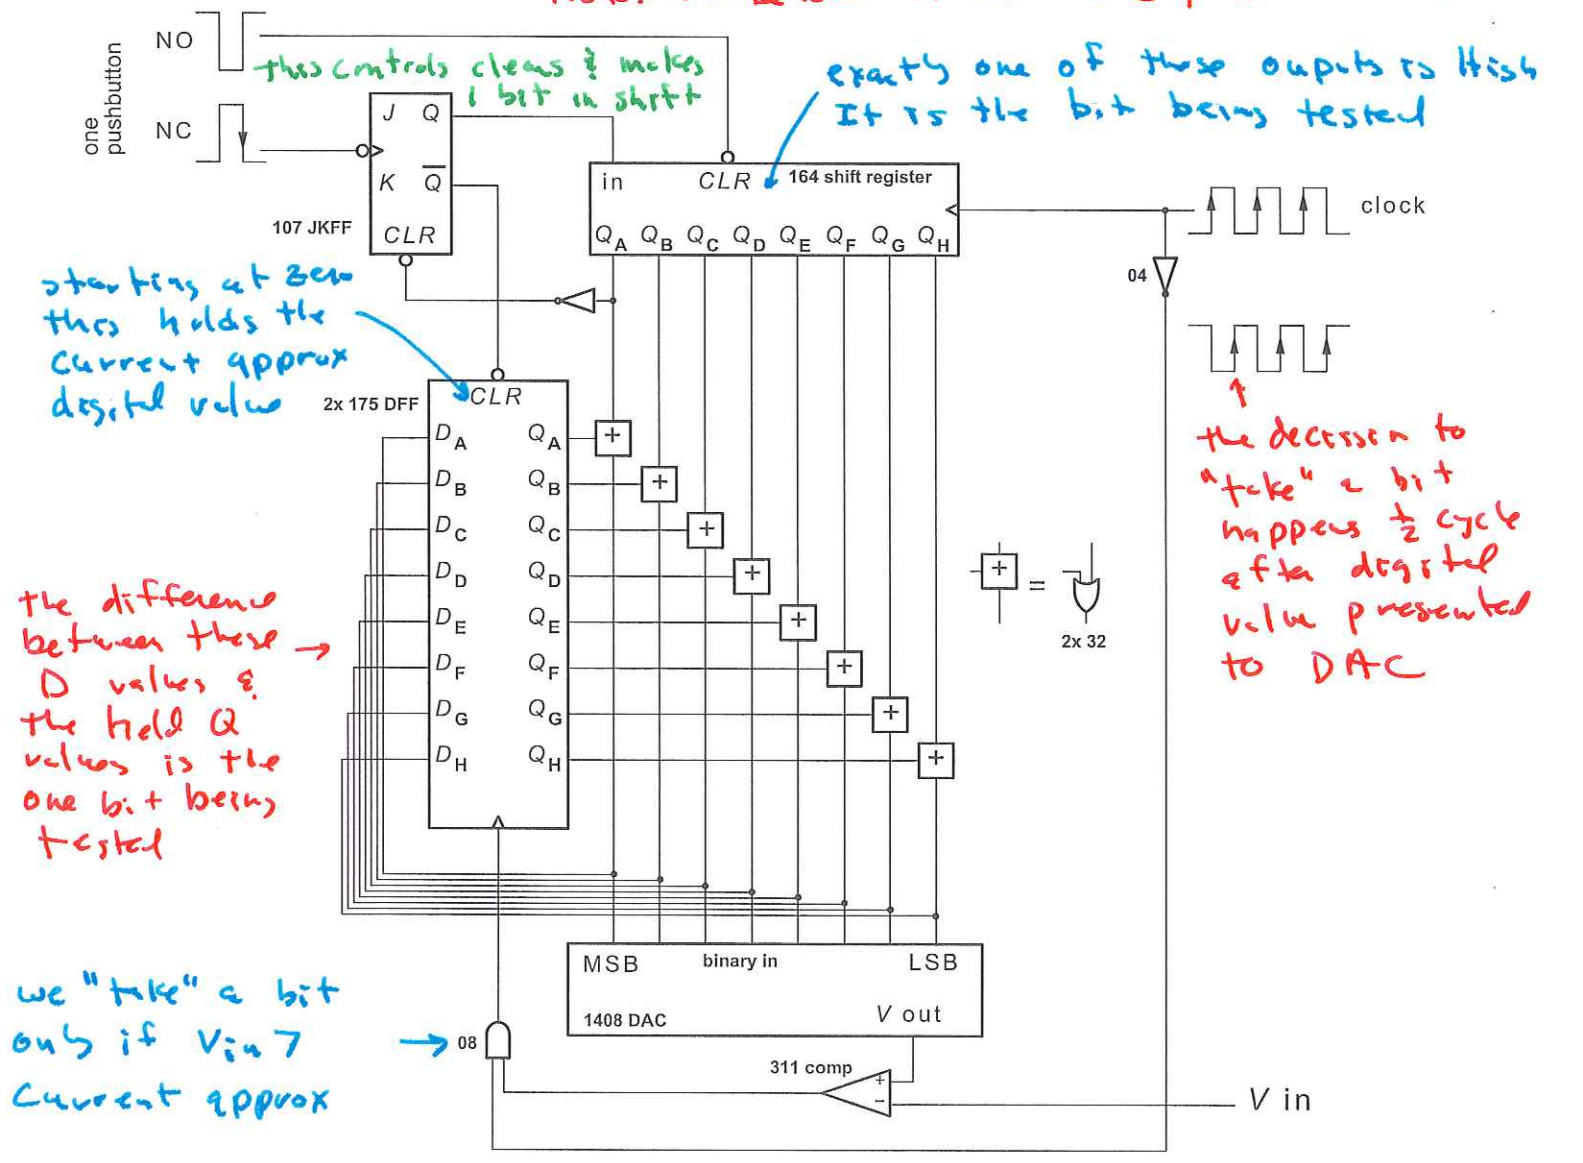 NO
NC
one
pushbutton
this controls clears & makes
1 bit in shift
exactly one of these ouputs is High
It is the bit being tested
J Q
K Q
CLR
107 JKFF
in CLR 164 shift register
QA QB QC QD QE QF QG QH
clock
04
starting at zero
this holds the
current approx
digital value
2x 175 DFF
CLR
DA QA +
DB QB +
DC QC +
DD QD +
DE QE +
DF QF +
DG QG +
DH QH +
+ =
2x 32
the decission to
"take" a bit
happens ½ cycle
after digital
value presented
to DAC
the difference
between these
D values &
the held Q
values is the
one bit being
tested
MSB binary in LSB
1408 DAC V out
we "take" a bit
only if Vin >
Current approx
08
311 comp
+
-
V in